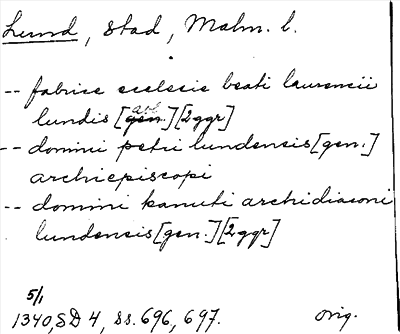 Lund, stad, Malm. l.
-- fabrice ecclesie beati laurencii
lundis [abl.] [2ggr]
-- domini petri lundensis [gen.]
archiepiscopi
-- domini kanuti archidiaconi
lundensis [gen.] [2ggr]
5/1
1340, SD 4, ss. 696, 697. orig.